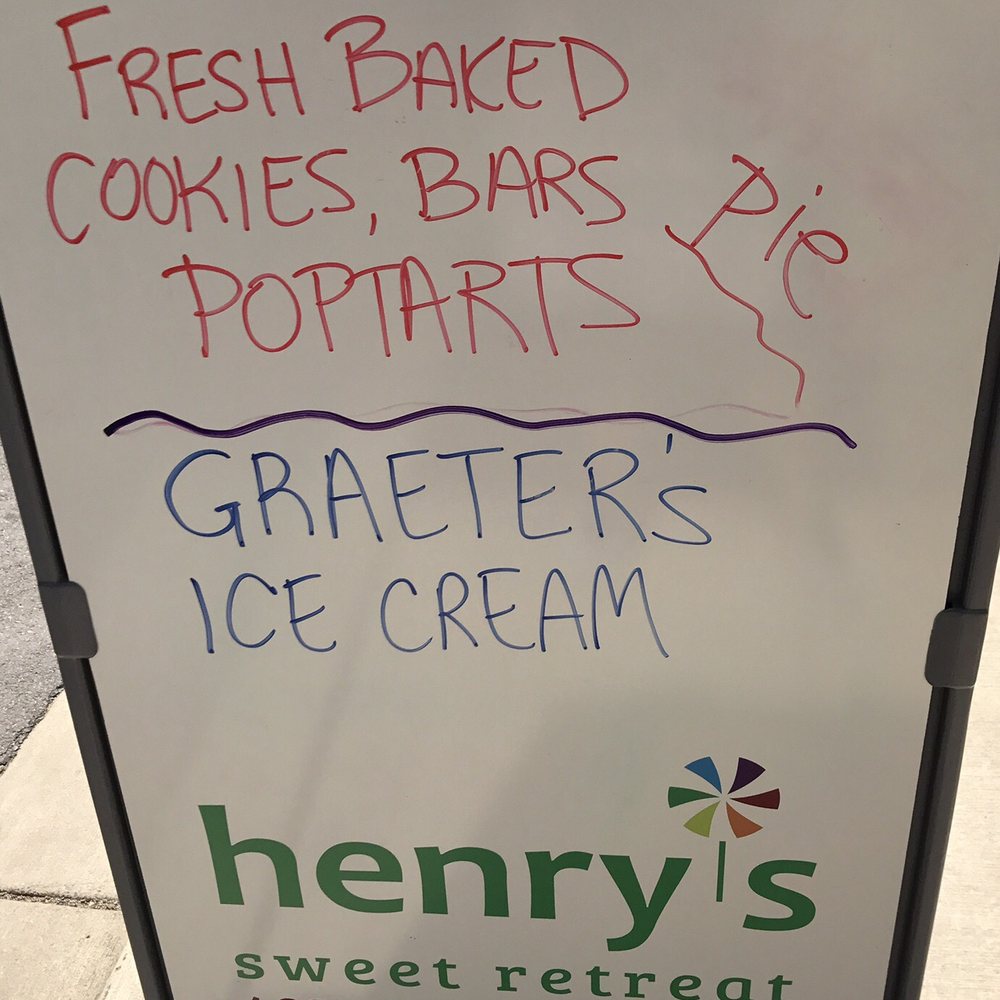 FRESH BAKED
COOKIES, BARS
Pie
POPTARTS
GRAETER'S
ICE CREAM
henry's
sweet retreat